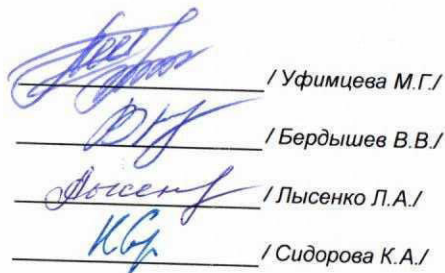 / Уфимцева М.Г./
/ Бердышев В.В./
/ Лысенко Л.А./
/ Сидорова К.А./